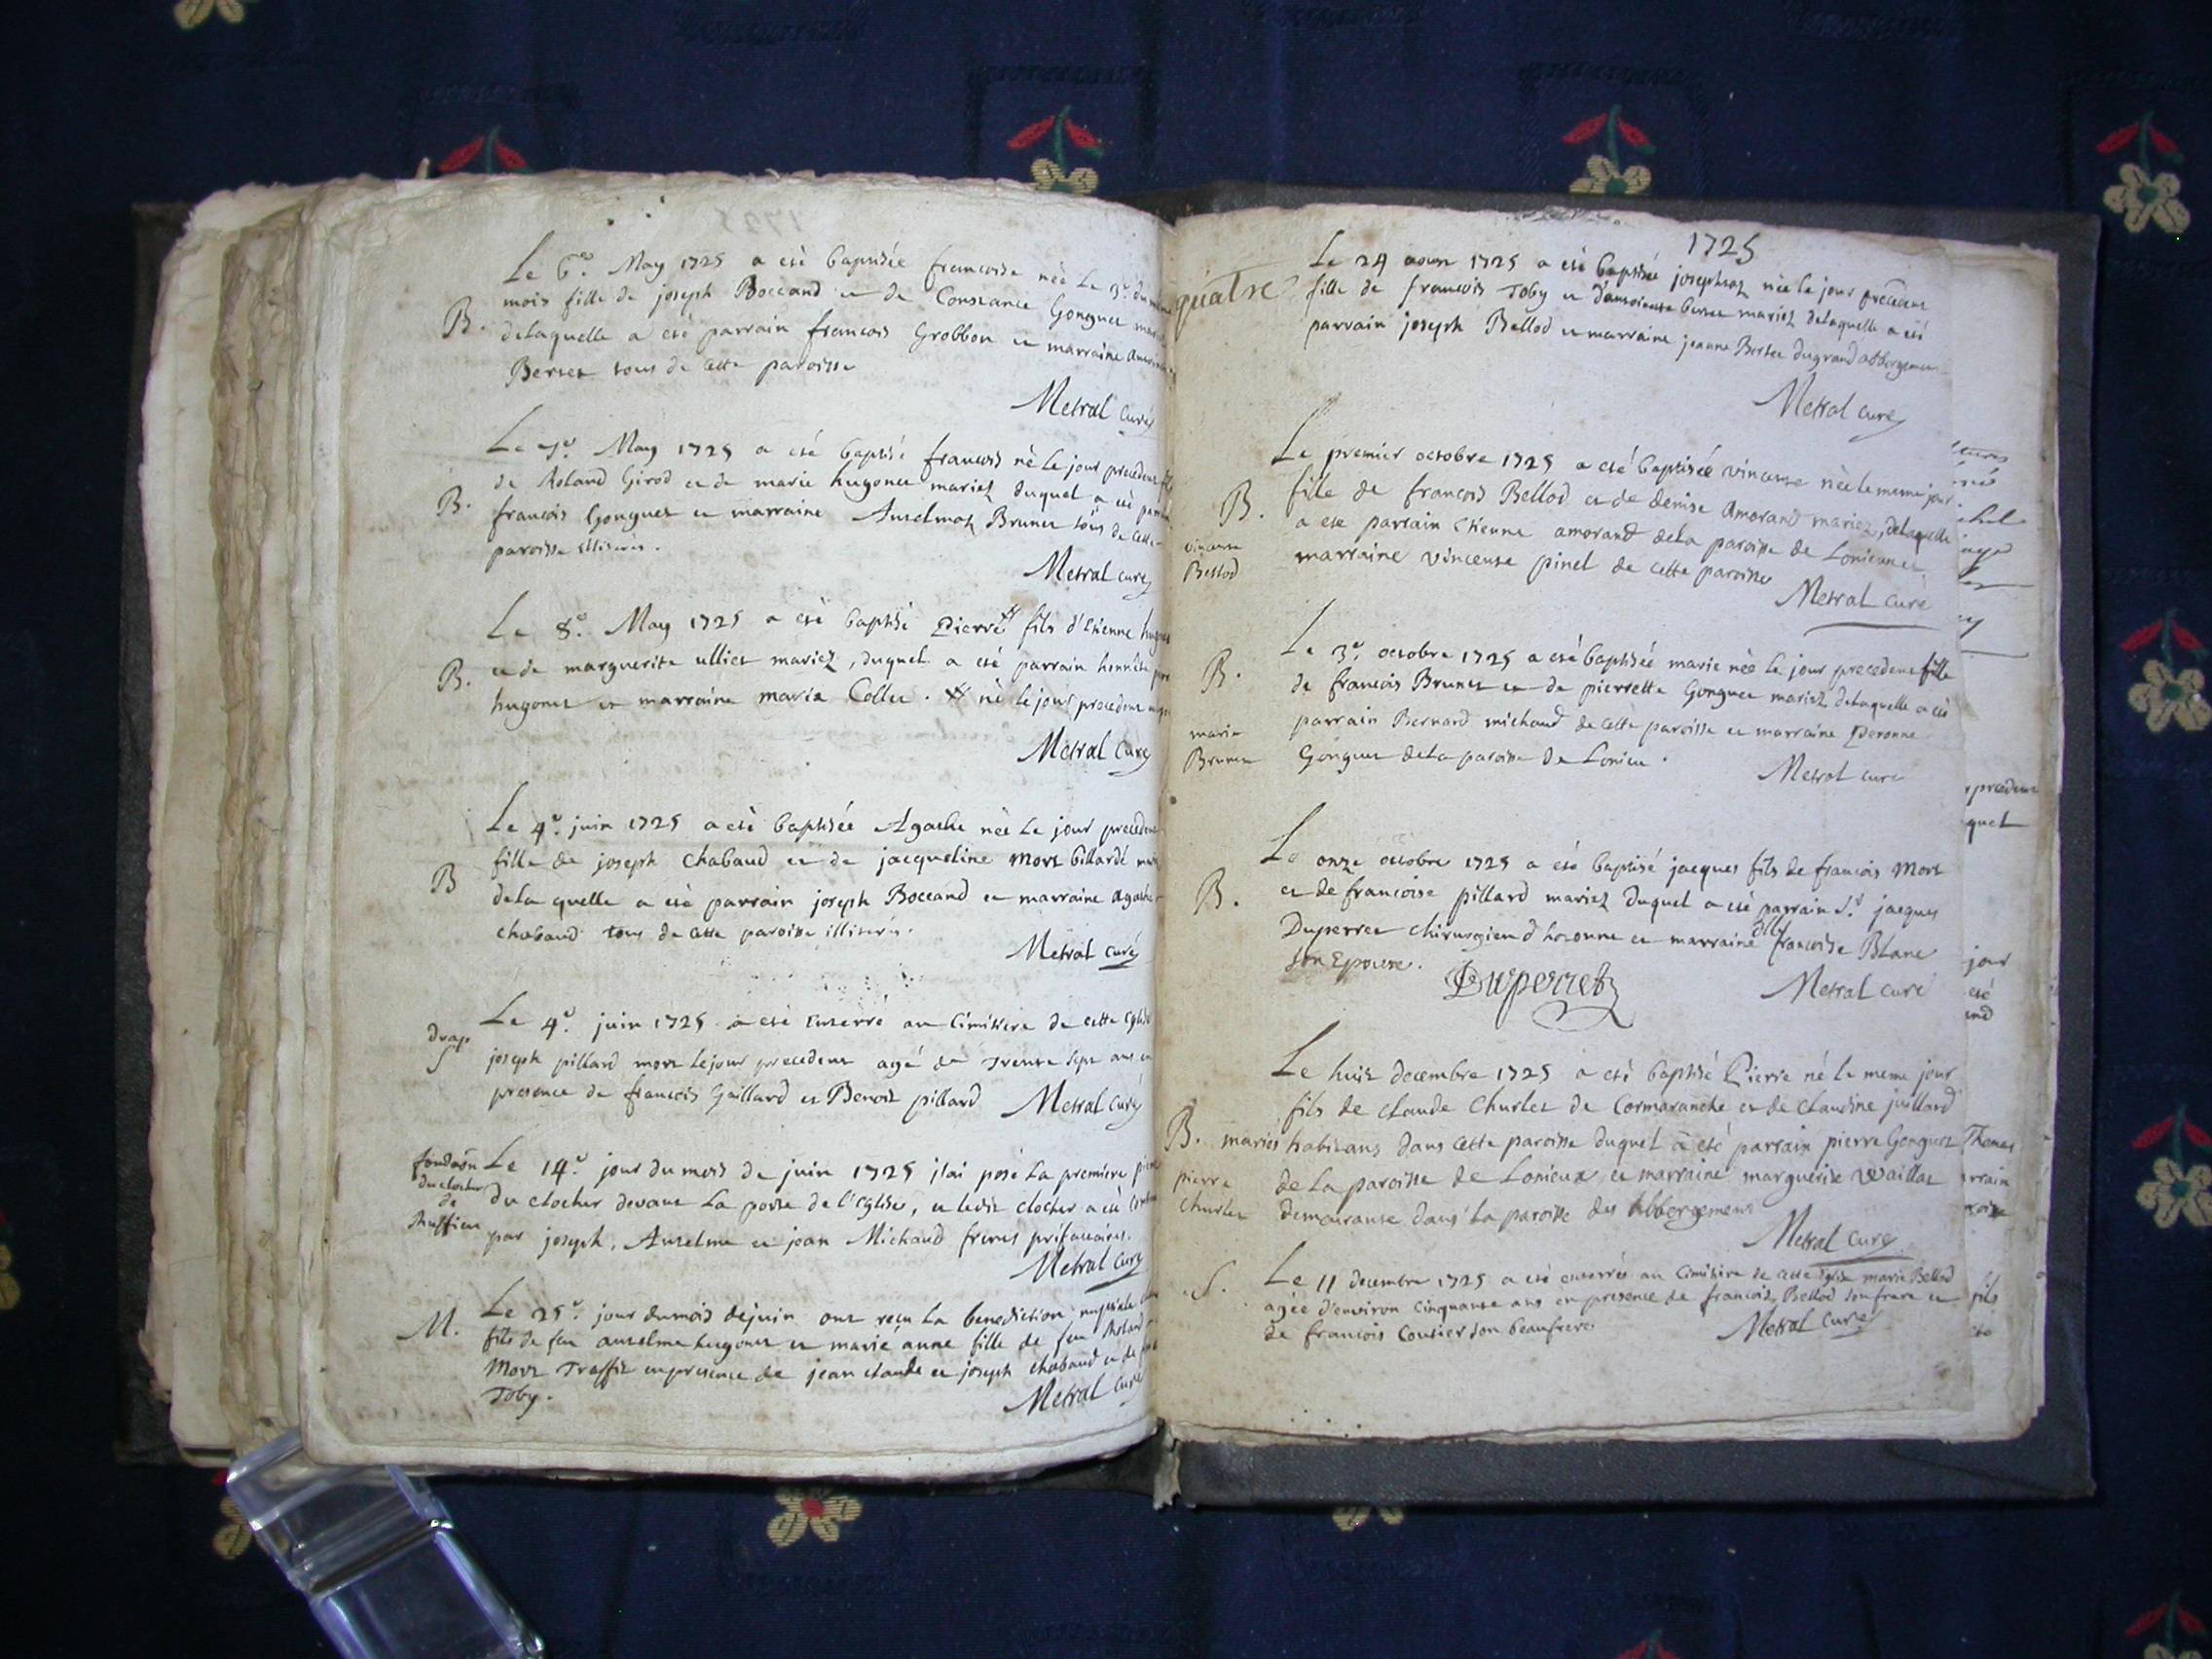 Le 6.e May 1725 a esté baptisée francoise née Le 3.e du
mois fille de joseph Boccand et de Constance Gonguet
B. delaquelle a esté parrain francois Grobbon et marraine
Berset tous de cette paroisse
Metral curé
Le 7.e May 1725 a esté baptisé francois né le jour precedent
de Roland Girod et de marie hugonet mariez duquel a esté
B. francois Gonguet et marraine Anselmaz Brunet tous de cette
paroisse illiterés.
Metral curé
Le 8.e May 1725 a esté baptisé Pierre # fils d'Etienne
B. et de marguerite ulliet mariez, duquel a esté parrain honnête
hugonet et marraine maria Collet. # né le jour precedent
Metral curé
Le 4.e juin 1725 a esté baptisée Agathe née Le jour precedent
fille de joseph chabaud et de jacqueline Mort billardé
B delaquelle a esté parrain joseph Boccand et marraine agathe
chabaud tous de cette paroisse illiterés.
Metral curé
Le 4.e juin 1725 a esté enterré au Cimitiere de cette Eglise
drap
S joseph pillard mort lejour precedent agé de Trente sept ans en
presence de francois Gaillard et Benoit pillard Metral curé
fondaôn Le 14.e jour du mois de juin 1725 j'ai posé La premiere
du clocher
de du clocher devant La porte de l'Eglise, et ledit clocher a esté
Ruffieu par joseph, Anselme et jean Michaud freres prifaitaires.
Metral curé
M. Le 25.e jour dumois dejuin ont reçu La benediction nuptiale
fils de feu anselme hugonet et marie anne fille de feu Roland
Mort Traffit en presence de jean claude et joseph chabaud et de
Toby.
Metral curé
1725
quatre
Le 24 aoust 1725 a esté baptisée josephtaz née le jour precedent
fille de francois Toby et d'antoinette berset mariez delaquelle a esté
parrain joseph Bellod et marraine jeanne Berset dugrand abbergement
Metral curé
Le premier octobre 1725 a esté baptisée vincente née le meme jour
B. fille de francois Bellod et de denise Amorand mariez, delaquelle
a esté parrain Etienne amorand dela paroisse de Lonieu et
vincente
Bellod marraine vincente pinel de cette paroisse
Metral curé
Le 3.e octobre 1725 a esté baptisée marie née le jour precedent fille
B. de francois Brunet et de pierrette Gonguet mariez delaquelle a esté
parrain Bernard michaud de cette paroisse et marraine Peronne
marie
Brunet Gonguet dela paroisse de Lonieu.
Metral curé
Le onze octobre 1725 a esté baptisé jacques fils de francois Mort
B. et de francoise pillard mariez duquel a esté parrain S.r jacques
Duperret chirurgien d'hotonne et marraine dlle francoise Blanc
son Epouse.
Duperret
Metral curé
Le huit decembre 1725 a esté baptisé Pierre né le meme jour
fils de claude Churlet de Cormaranche et de claudine juillard
B. mariés habitans dans cette paroisse duquel a esté parrain pierre Gonguet
pierre
churlet de La paroisse de Lonieux et marraine marguerite Vvaillat
demeurante dans la paroisse des Abbergemens
Metral curé
S. Le 11 decembre 1725 a esté enterrée au Cimitiere de cette Eglise marie Bellod
agée d'environ cinquante ans en presence de francois Bellod son frere et
de francois Coutier son beaufrere
Metral curé